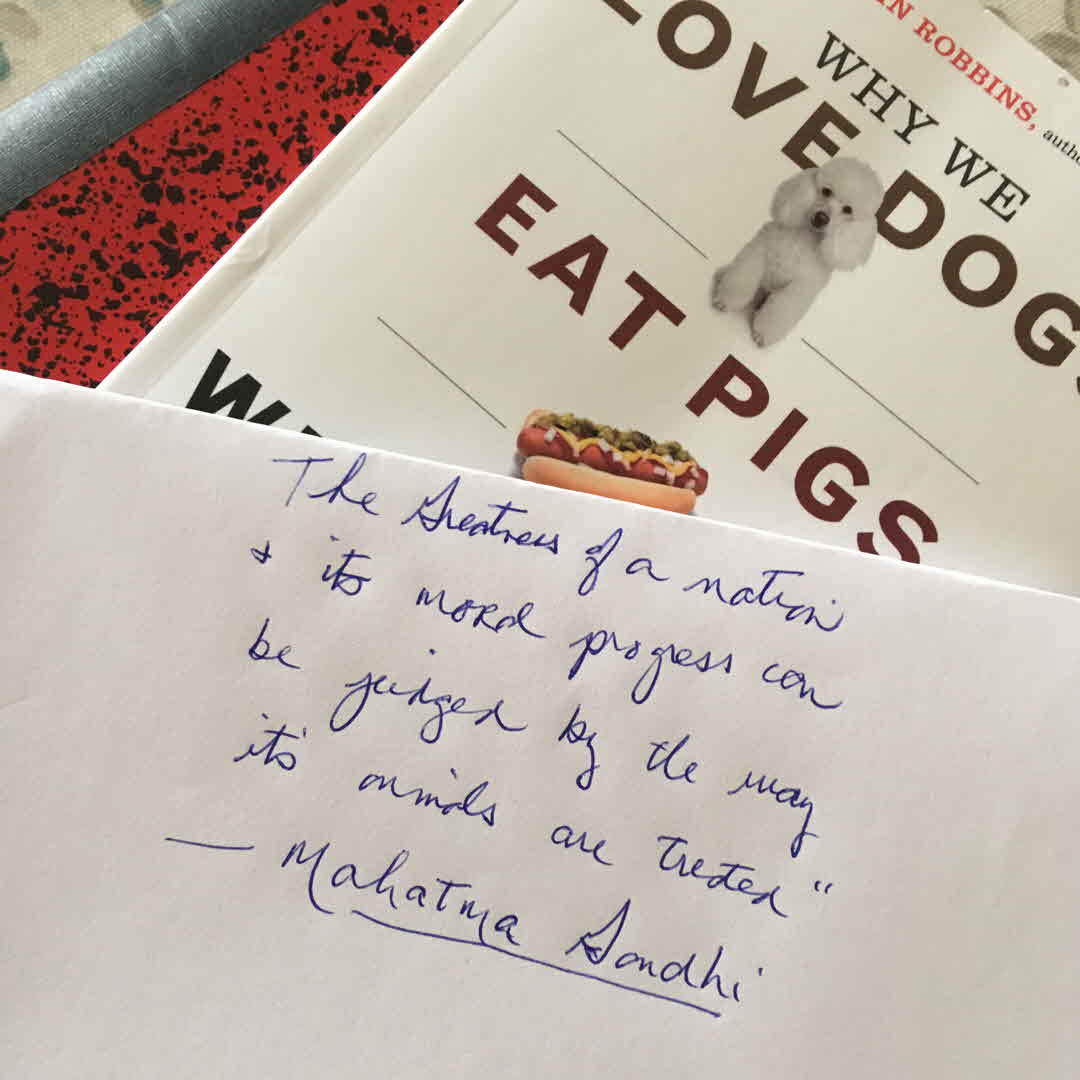 IN ROBBINS, autho
WHY WE
LOVE DOGS
EAT PIGS
W
The Greatness of a nation
& its moral progress can
be judged by the way
it's animals are treated"
— Mahatma Gandhi